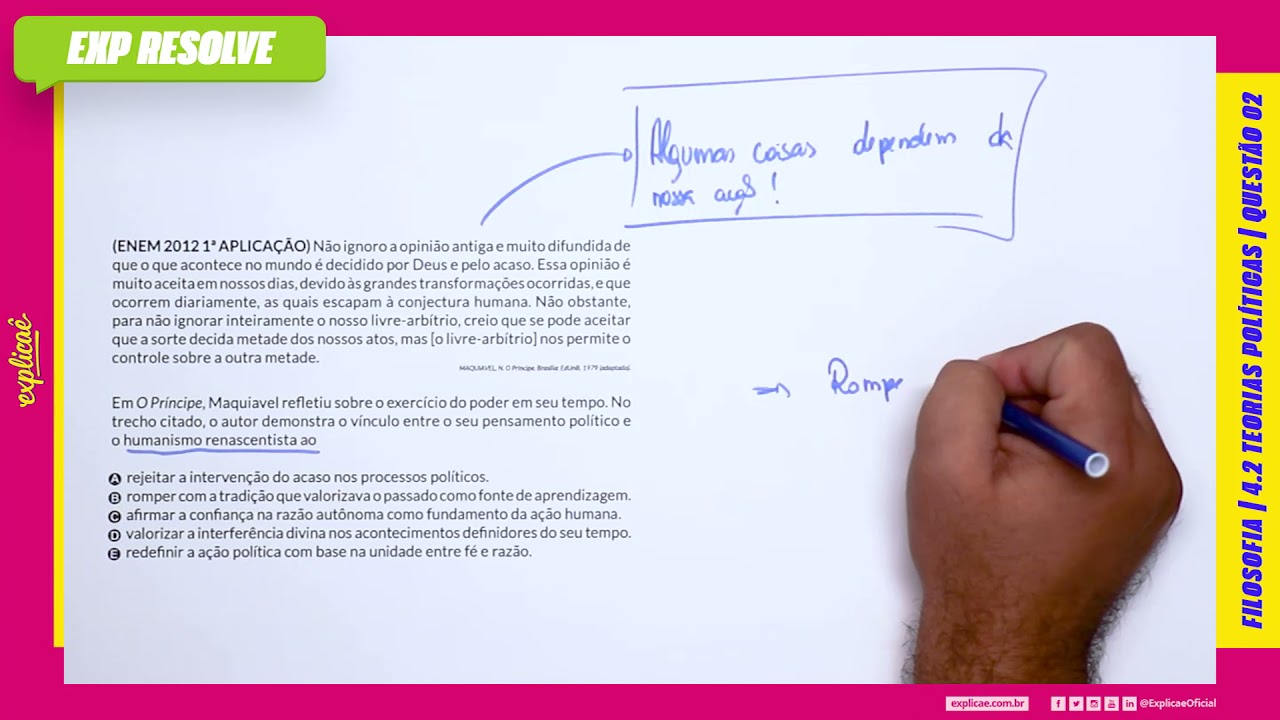 EXP RESOLVE
Algumas coisas dependem da
nossa ação!
(ENEM 2012 1ª APLICAÇÃO) Não ignoro a opinião antiga e muito difundida de
que o que acontece no mundo é decidido por Deus e pelo acaso. Essa opinião é
muito aceita em nossos dias, devido às grandes transformações ocorridas, e que
ocorrem diariamente, as quais escapam à conjectura humana. Não obstante,
para não ignorar inteiramente o nosso livre-arbítrio, creio que se pode aceitar
que a sorte decida metade dos nossos atos, mas [o livre-arbítrio] nos permite o
controle sobre a outra metade.
MAQUIAVEL, N. O Príncipe. Brasília: EdUnB, 1979 (adaptado).
Em O Príncipe, Maquiavel refletiu sobre o exercício do poder em seu tempo. No
trecho citado, o autor demonstra o vínculo entre o seu pensamento político e
o humanismo renascentista ao
A rejeitar a intervenção do acaso nos processos políticos.
B romper com a tradição que valorizava o passado como fonte de aprendizagem.
C afirmar a confiança na razão autônoma como fundamento da ação humana.
D valorizar a interferência divina nos acontecimentos definidores do seu tempo.
E redefinir a ação política com base na unidade entre fé e razão.
Rompe
explicaê
FILOSOFIA | 4.2 TEORIAS POLÍTICAS | QUESTÃO 02
explicae.com.br
@ExplicaeOficial